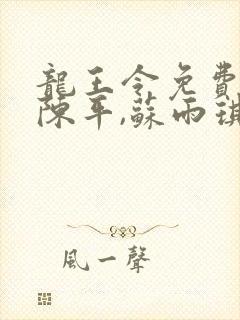 龍王令免費
陳平,蘇雨琪
風一聲